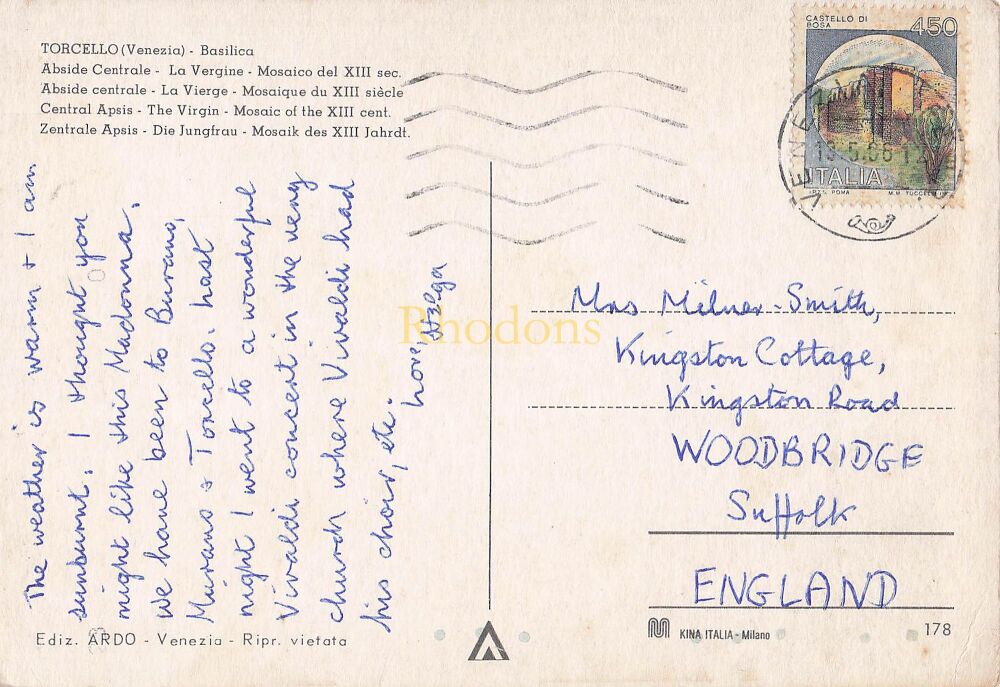 TORCELLO (Venezia) - Basilica
Abside Centrale - La Vergine - Mosaico del XIII sec.
Abside centrale - La Vierge - Mosaique du XIII siècle
Central Apsis - The Virgin - Mosaic of the XIII cent.
Zentrale Apsis - Die Jungfrau - Mosaik des XIII Jahrdt.
CASTELLO DI
BOSA
450
ITALIA
The weather is warm + I am
sunburnt. I thought you
might like this Madonna.
We have been to Burano,
Murano & Torcello. Last
night I went to a wonderful
Vivaldi concert in the very
church where Vivaldi had
his choir, etc.
Love, Helga
Rhodons
Mrs Milner-Smith,
Kingston Cottage,
Kingston Road
WOODBRIDGE
Suffolk
ENGLAND
Ediz. ARDO - Venezia - Ripr. vietata
KINA ITALIA - Milano
178